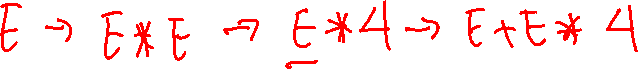 E → E * E → E * 4 → E + E * 4